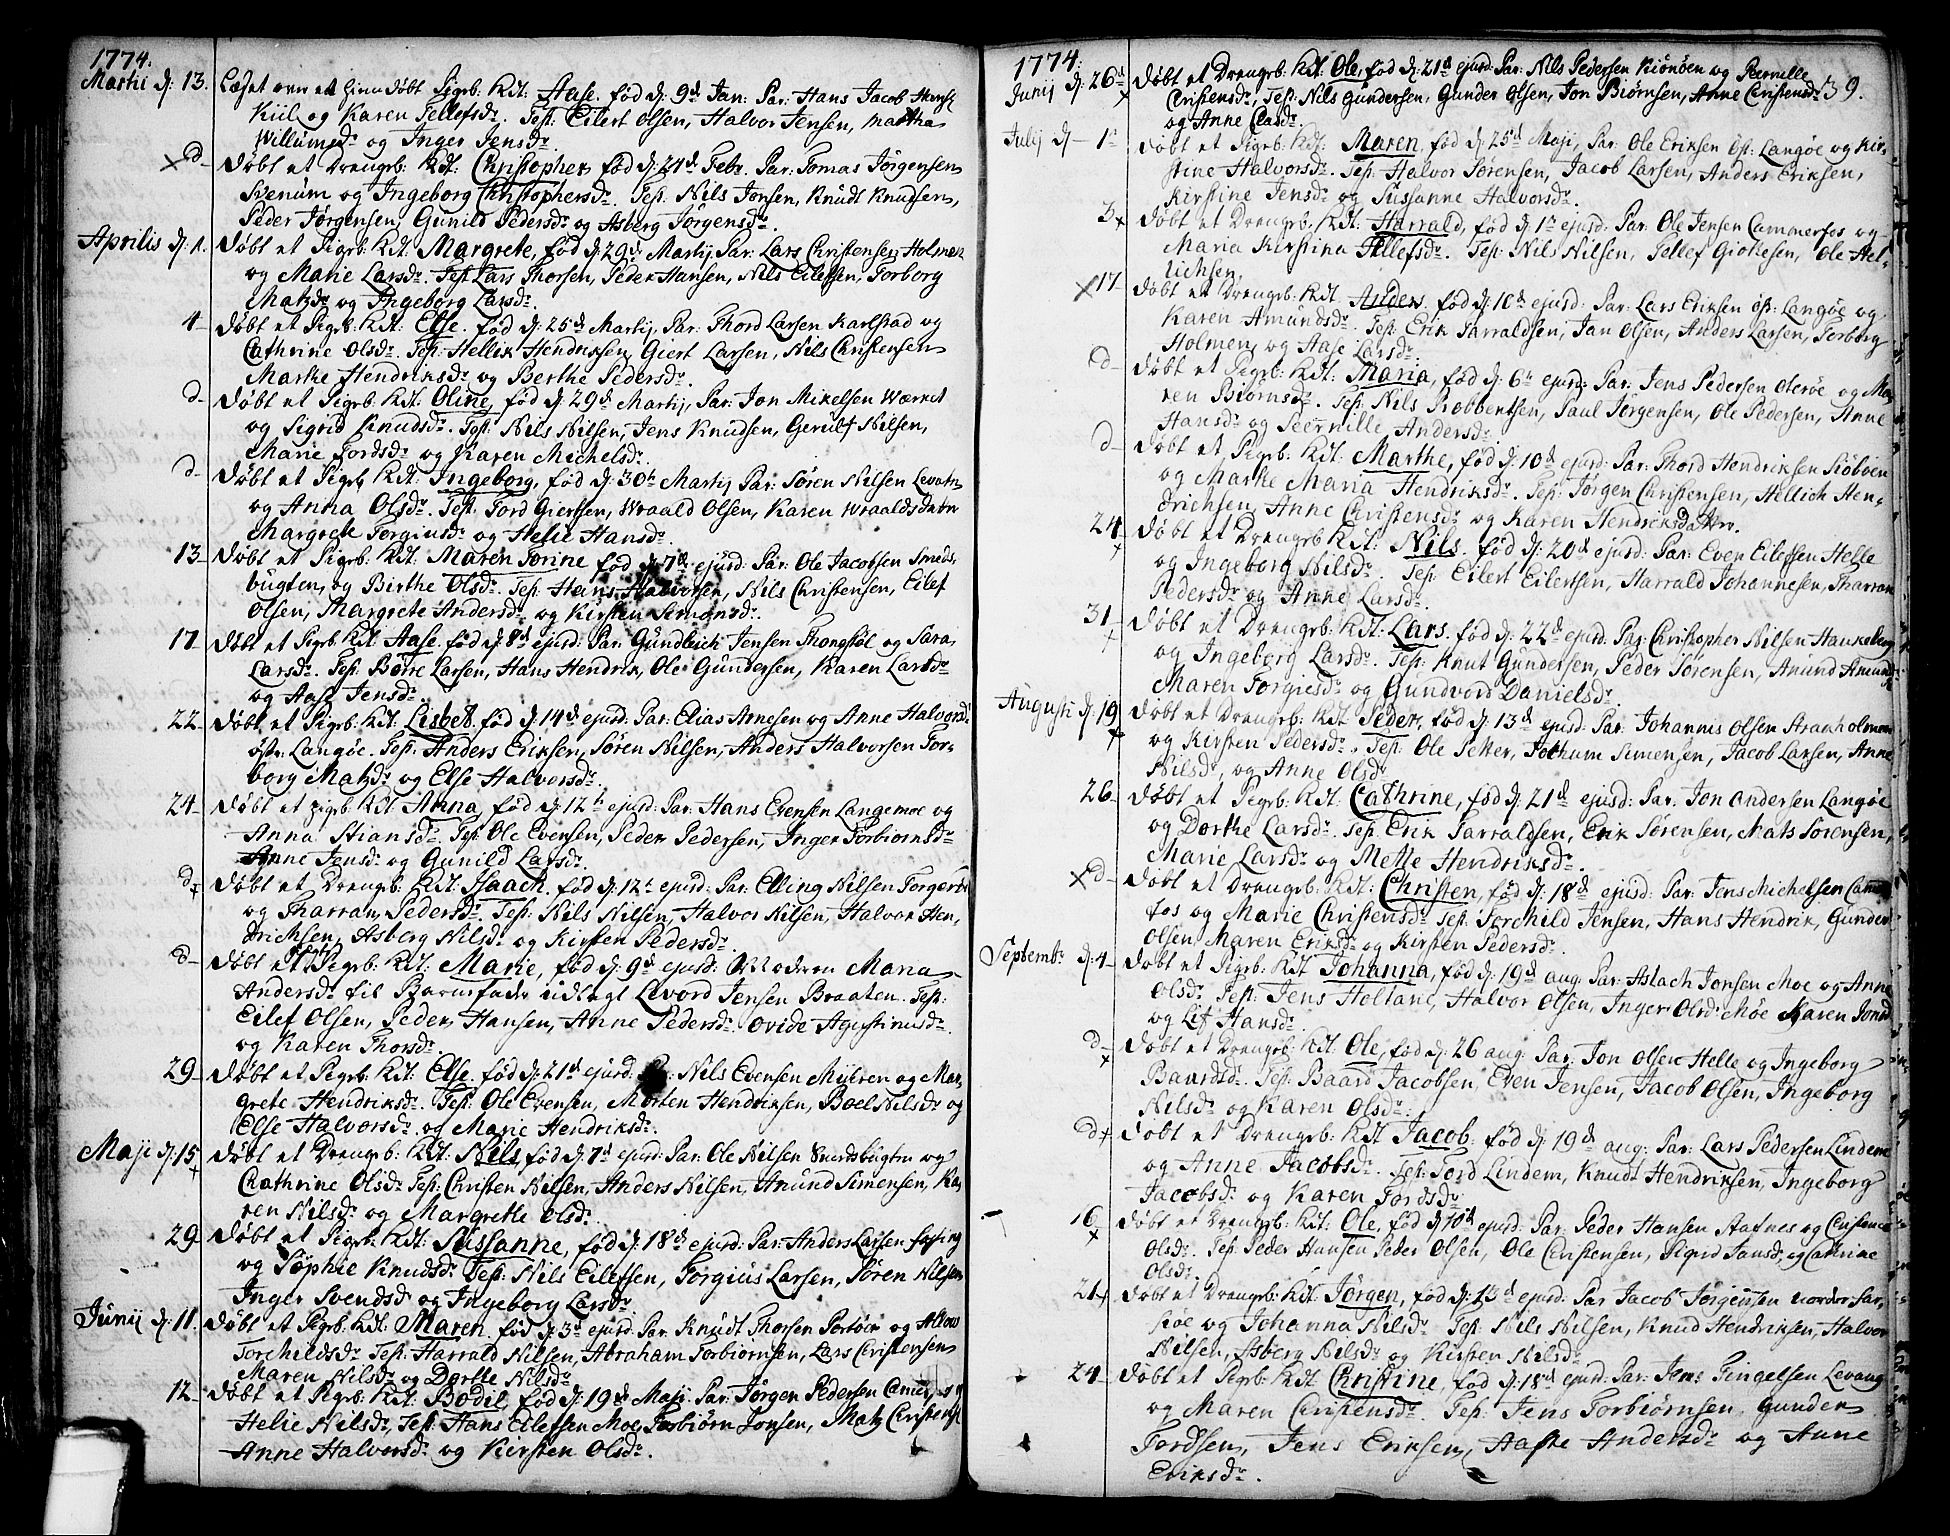 1774.
Martii d: 13. Læset over et hiemdøbt Pigeb: Kdt: Aase. fød d: 9d Jan: Par: Hans Jacob
Kiil og Karen Tellefsdr. Test: Eilert Olsen, Halvor Jensen, Martha
Willumsdr og Inger Jensdr.
d– Døbt et Drengeb: Kdt: Christopher fød d: 24d Febr. Par: Tomas Jørgensen
Svenum og Ingeborg Christophersdr. Test: Nils Jonsen, Knudt Knudsen,
Peder Jørgensen, Gunild Pedersdr og Asberg Jørgensdr.
Aprilis d: 1. Døbt et Pigeb: Kdt: Margrete, fød d: 29d Martij, Par: Lars Christensen Holmen
og Marie Larsdr. Test: Lars Thorsen, Peder Hansen, Nils Eilertsen, Torborg
Matzdr og Ingeborg Larsdr.
4– Døbt et Pigeb: Kdt: Else. fød d: 25d Martij, Par: Thord Larsen Karlstad og
Cathrine Olsdr. Test: Hellik Hendriksen, Giert Larsen, Nils Christensen
Marthe Hendriksdr og Berthe Pedersdr.
d– Døbt et Pigeb: Kdt: Oline, fød d: 29d Martij, Par: Jon Mikelsen Wærket
og Sigrid Knudsdr. Test: Nils Nilsen, Jens Knudsen, Gerulf Nilsen,
Marie Tordsdr og Karen Michelsdr.
d– Døbt et Pigeb: Kdt: Ingeborg, fød d: 30te Martij Par: Søren Nilsen Levatn
og Anna Olsdr. Test: Tord Giertsen, Wraald Olsen, Karen Wraaldsdatr
Margrete Torgiusdr og Helie Hansdr.
13– Døbt et Pigeb: Kdt: Maren Torine fød d: 7d ejusd: Par: Ole Jacobsen Smeds-
bugten, og Birthe Olsdr. Test: Hans Halvorsen, Nils Christensen, Eilef
Olsen, Margrete Andersdr og Kirsten Simonsdr.
17 Døbt et Pigeb: Kdt: Aase. fød d: 8d ejusd: Par: Gundleich Jensen Thongstøl og Sara
Larsdr. Test: Børe Larsen, Hans Hendrik, Ole Gundersen, Karen Larsdr
og Aase Jensdr.
22– Døbt et Pigeb: Kdt: Lisbet. fød d: 14d ejusd: Par: Elias Arnesen og Anne Halvorsdr
østr: Langøe. Test: Anders Eriksen, Søren Nilsen, Anders Halvorsen Tor-
borg Matzdr og Else Halvorsdr.
24– Døbt et Pigeb: Kdt: Anna, fød d: 12te ejusd: Par: Hans Evensen Langemoe og
Anna Stiansdr. Test: Ole Evensen, Peder Pedersen, Inger Torbiornsdr
Anne Jensdr og Gunild Larsdr.
d– Døbt et Drengeb: Kdt: Isaach. fød d: 12te ejusd: Par: Elling Nilsen
og Tharran Pedersdr. Test: Nils Nilsen, Halvor Nilsen, Halvor Hen-
drichsen, Asberg Nilsdr og Kirsten Pedersdr.
d– Døbt et Pigeb: Kdt: Marie, fød d: 9d ejusd: Moderen Maria
Andersdr til Barnefader udlagt Levord Jensen Braaten. Test:
Eilef Olsen, Peder Hansen, Anne Pedersdr. Ovide Agustinusdr.
og Karen Thorsdr.
29– Døbt et Pigeb: Kdt: Else, fød d: 21d ejusd: Par: Nils Evensen Myhren og Mar-
grete Hendriksdr. Test: Ole Evensen, Morten Hendriksen, Boel Nilsdr og
Else Halvorsdr og Marie Hendriksdr.
Maji d: 15 Døbt et Drengeb: Kdt: Nils, fød d: 7d ejusd: Par: Ole Nilsen Smedsbugten og
Cathrine Olsdr Test: Christen Nilsen, Anders Nilsen, Anund Simensen, Ka-
ren Nilsdr og Margrethe Olsdr.
29 Døbt et Pigeb: Kdt: Sussanne, fød d: 18d ejusd: Par: Anders Larsen Fossing
og Sophie Knudsdr Test: Nils Eilertsen, Torgius Larsen, Søren Nilsen
Inger Svendsd og Ingeborg Larsdr.
Junij d: 11. Døbt et Pigeb: Kdt: Maren. fød d: 3d ejusd: Par: Knudt Thorsen og
Torchildsdr Test: Harrald Nilsen, Abraham Torbiornsen, Lars Christensen
Maren Nilsdr og Dorthe Nilsdr.
12– Døbt et Pigeb: Kdt: Bodil, fød d: 19d Maji Par: Jørgen Pedersen
Helie Nilsdr, Test: Hans Eilefsen Moe, Torbiørn Jonsen, Matz Christens
Anne Halvorsdr og Kirsten Olsdr.
1774. 39.
Junij d: 26d Døbt et Drengeb: Kdt: Ole, fød d: 21d ejusd: Par: Nils Pedersen Kiønøen og Pernille
Christensdr, Test: Nils Gundersen, Gunder Olsen, Jon Biørnsen, Anne Christensdr
og Anne Clasdr.
Julij d– 1te Døbt et Pigeb: Kdt: Maren, fød d: 25d Maji, Par: Ole Eriksen øst: Langøe og Kir-
stine Halvorsdr. Test: Halvor Sørensen, Jacob Larsen, Anders Eriksen,
Kirstine Jensdr og Sussanne Halvorsdr.
3 Døbt et Drengeb: Kdt: Harrald, fød d: 1te ejusd: Par: Ole Jensen Cammerfos og
Maria Kirstina Tellefsdr. Test: Nils Nilsen, Tellef Giottesen, Ole Hel-
lichsen.
17 Døbt et Drengeb: Kdt: Anders. fød d: 10d ejusd: Par: Lars Eriksen øst: Langøe og
Karen Amundsdr. Test: Erik Tarraldsen, Jan Olsen, Anders Larsen, Torborg
Holmen, og Aase Larsdr.
d– Døbt et Pigeb: Kdt: Maria, fød d: 6te ejusd: Par: Jens Pedersen Oterøe og Ma-
ren Biørnsdr. Test: Nils Robbentsen, Paul Jørgensen, Ole Pedersen, Anne
Hansdr og Peernille Andersdr.
d– Døbt et Pigeb: Kdt: Marthe, fød d: 10d ejusd: Par: Thord Hendriksen Siøboen
og Marthe Maria Hendriksdr. Test: Jørgen Christensen, Hellich Hen-
drichsen, Anne Christensdr og Karen Hendriksdatter.
24– Døbt et Drengeb Kdt: Nils. fød d: 20d ejusd: Par: Even Eilefsen Helle
og Ingeborg Nilsdr. Test: Eilert Eilertsen, Harrald Johannesen, Tharran
Pedersdr og Anne Larsdr.
31– Døbt et Drengeb: Kdt: Lars. fød d: 22d ejusd: Par: Christopher Nilsen Haukeberg
og Ingeborg Larsdr. Test: Knut Gundersen, Peder Sørensen, Anund Amunds
Maren Torgiesdr og Gundvord Danielsdr.
Augusti d: 19 Døbt et Drengeb: Kdt Peder, fød d: 13d ejusd: Par: Johannis Olsen Straaholmen
og Kirsten Pedersdr. Test: Ole Petter, Jochum Simensen, Jacob Larsen, Anne
Nilsdr, og Anne Olsdr.
26– Døbt et Pigeb: Kdt: Cathrine, fød d: 21d ejusd: Par: Jon Andersen Langøe
og Dorthe Larsdr. Test: Erik Tarraldsen, Erik Sørensen, Mats Sørensen,
Marie Larsdr og Mette Hendriksdr.
d– Døbt et Drengeb: Kdt: Christen, fød d: 18d ejusd: Par: Jens Michelsen Camer-
fos og Marie Christensdr Test: Torchild Jensen, Hans Hendrik, Gunder
Olsen Maren Eriksdr og Kirsten Pedersdr.
Septembr d: 4– Døbt et Pigeb: Kdt Johanna, fød d: 19d aug: Par: Aslach Jonsen Moe og Anne
Olsdr. Test: Jens Holtane, Halvor Olsen, Inger Olsdr Møe Karen Jonsd
og Lif Hansdr.
d– Døbt et Drengeb: Kdt: Ole, fød d: 26 aug: Par: Jon Olsen Helle og Ingeborg
Baardsdr. Test: Baard Jacobsen, Even Jensen, Jacob Olsen, Ingeborg
Nilsdr og Karen Olsdr.
d– Døbt et Drengeb: Kdt Jacob. fød d: 19d aug: Par: Lars Pedersen Lindem
og Anne Jacobsdr. Test: Tord Lindem, Knudt Hendriksen, Ingeborg
Jacobsdr og Karen Tordsdr.
16– Døbt et Drengeb: Kdt: Ole, fød d: 10d ejusd: Par: Peder Hansen Aafnes og
Olsdr. Test: Peder Hansen Peder Olsen, Ole Christensen, Sigrid Jansdr, og Cathrine
Olsdr.
21 Døbt et Drengeb: Kdt: Jørgen, fød d: 13d ejusd: Par Jacob Jørgensen Nordre Far-
støe og Johanna Nilsdr Test: Nils Nilsen, Knud Hendriksen, Halvor
Nilsen, Asberg Nilsdr og Kirsten Nilsdr
24– Døbt et Pigeb: Kdt Christine, fød d: 18d ejusd: Par: Jens Tingelsen Levang
og Maren Christensdr. Test: Jens Torbiørnsen, Gunder
Tordsen, Jens Eriksen, Aaste Andersdr og Anne
Eriksdr.